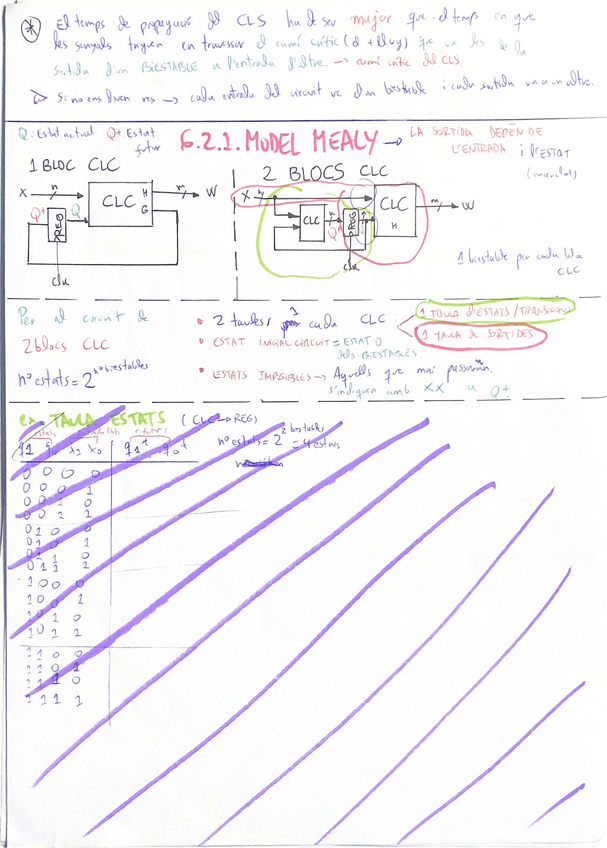 * El temps de propagació del CLS ha de ser major que el temps en que
les senyals triguen en travessar el camí crític (el + llarg) que va des de la
sortida d'un BIESTABLE a l'entrada d'altre. → camí crític del CLS
▷ Si no ens diuen res → cada entrada del circuit ve d'un biestable i cada sortida va a un altre.
Q: Estat actual Q+ Estat
futur
6.2.1. MODEL MEALY → LA SORTIDA DEPÈN DE
L'ENTRADA i L'ESTAT
1 BLOC CLC
X n CLC H m W
G
Q+ REG Q
clk
2 BLOCS CLC
X n CLC m W
H
CLC Q+ REG
clk
1 biestable per cada bloc
CLC
Per al circuit de
2 blocs CLC
nº estats = 2^nº biestables
• 2 taules, 1 cada CLC:
1 TAULA D'ESTATS/TRANSICIONS
1 TAULA DE SORTIDES
• ESTAT INICIAL CIRCUIT = ESTAT 0
DELS BIESTABLES
• ESTATS IMPOSSIBLES → Aquells que mai passaran.
s'indiquen amb XX a Q+
ex. TAULA ESTATS (CLC → REG)
nº estats = 2^2 biestables = 4 estats
q1 q0 x1 x0 q1+ q0+
0 0 0 0
0 0 0 1
0 0 1 0
0 0 1 1
0 1 0 0
0 1 0 1
0 1 1 0
0 1 1 1
1 0 0 0
1 0 0 1
1 0 1 0
1 0 1 1
1 1 0 0
1 1 0 1
1 1 1 0
1 1 1 1